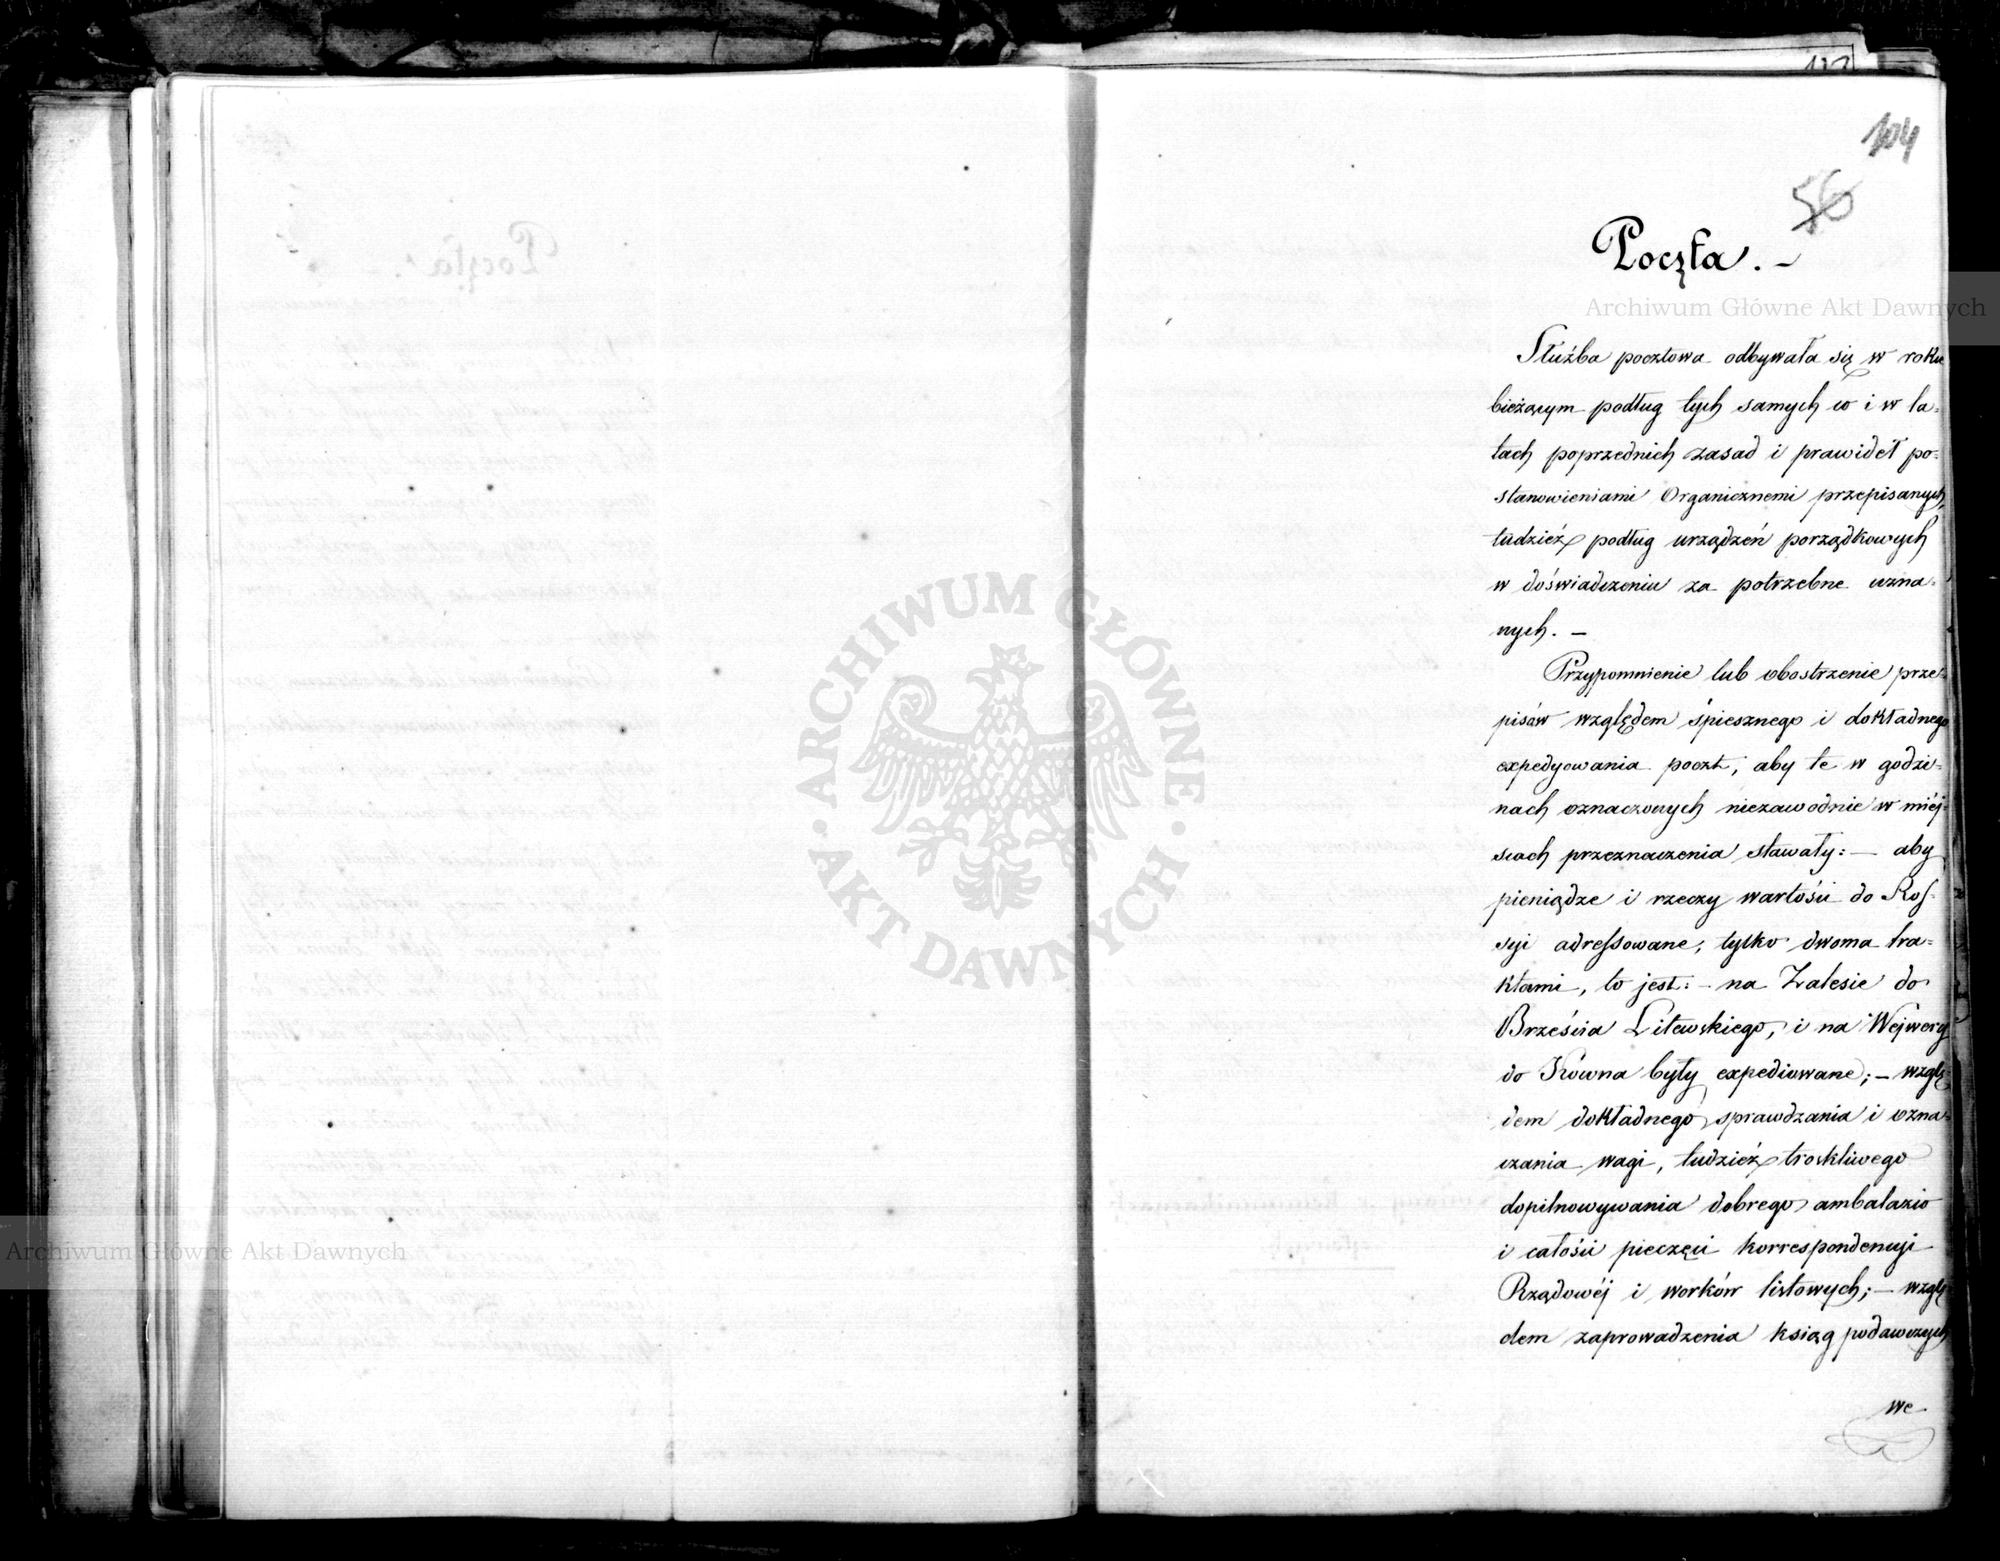 104
56
Poczta. –
Służba pocztowa odbywała się w roku
bieżącym podług tych samych co i w la-
tach poprzednich zasad i prawideł po-
stanowieniami Organicznemi przepisanych,
tudzież podług urządzeń porządkowych
w doświadczeniu za potrzebne uzna-
nych. –
Przypomnienie lub obostrzenie prze-
pisów względem śpiesznego i dokładnego
expedyowania poczt, aby te w godzi-
nach oznaczonych niezawodnie w miéj-
scach przeznaczenia stawały: – aby
pieniądze i rzeczy wartości do Ros-
syi adressowane, tylko dwoma tra-
ktami, to jest: – na Zalesie do
Brześcia Litewskiego, i na Wejwery
do Kowna były expediowane; – wzglę-
dem dokładnego sprawdzania i ozna-
czania wagi, tudzież troskliwego
dopilnowywania dobrego ambalażu
i całości pieczęci korrespondencyi
Rządowéj i worków listowych; – wzglę-
dem zaprowadzenia ksiąg podawczych
we
Archiwum Główne Akt Dawnych
Archiwum Główne Akt Dawnych
ARCHIWUM GŁÓWNE
AKT DAWNYCH